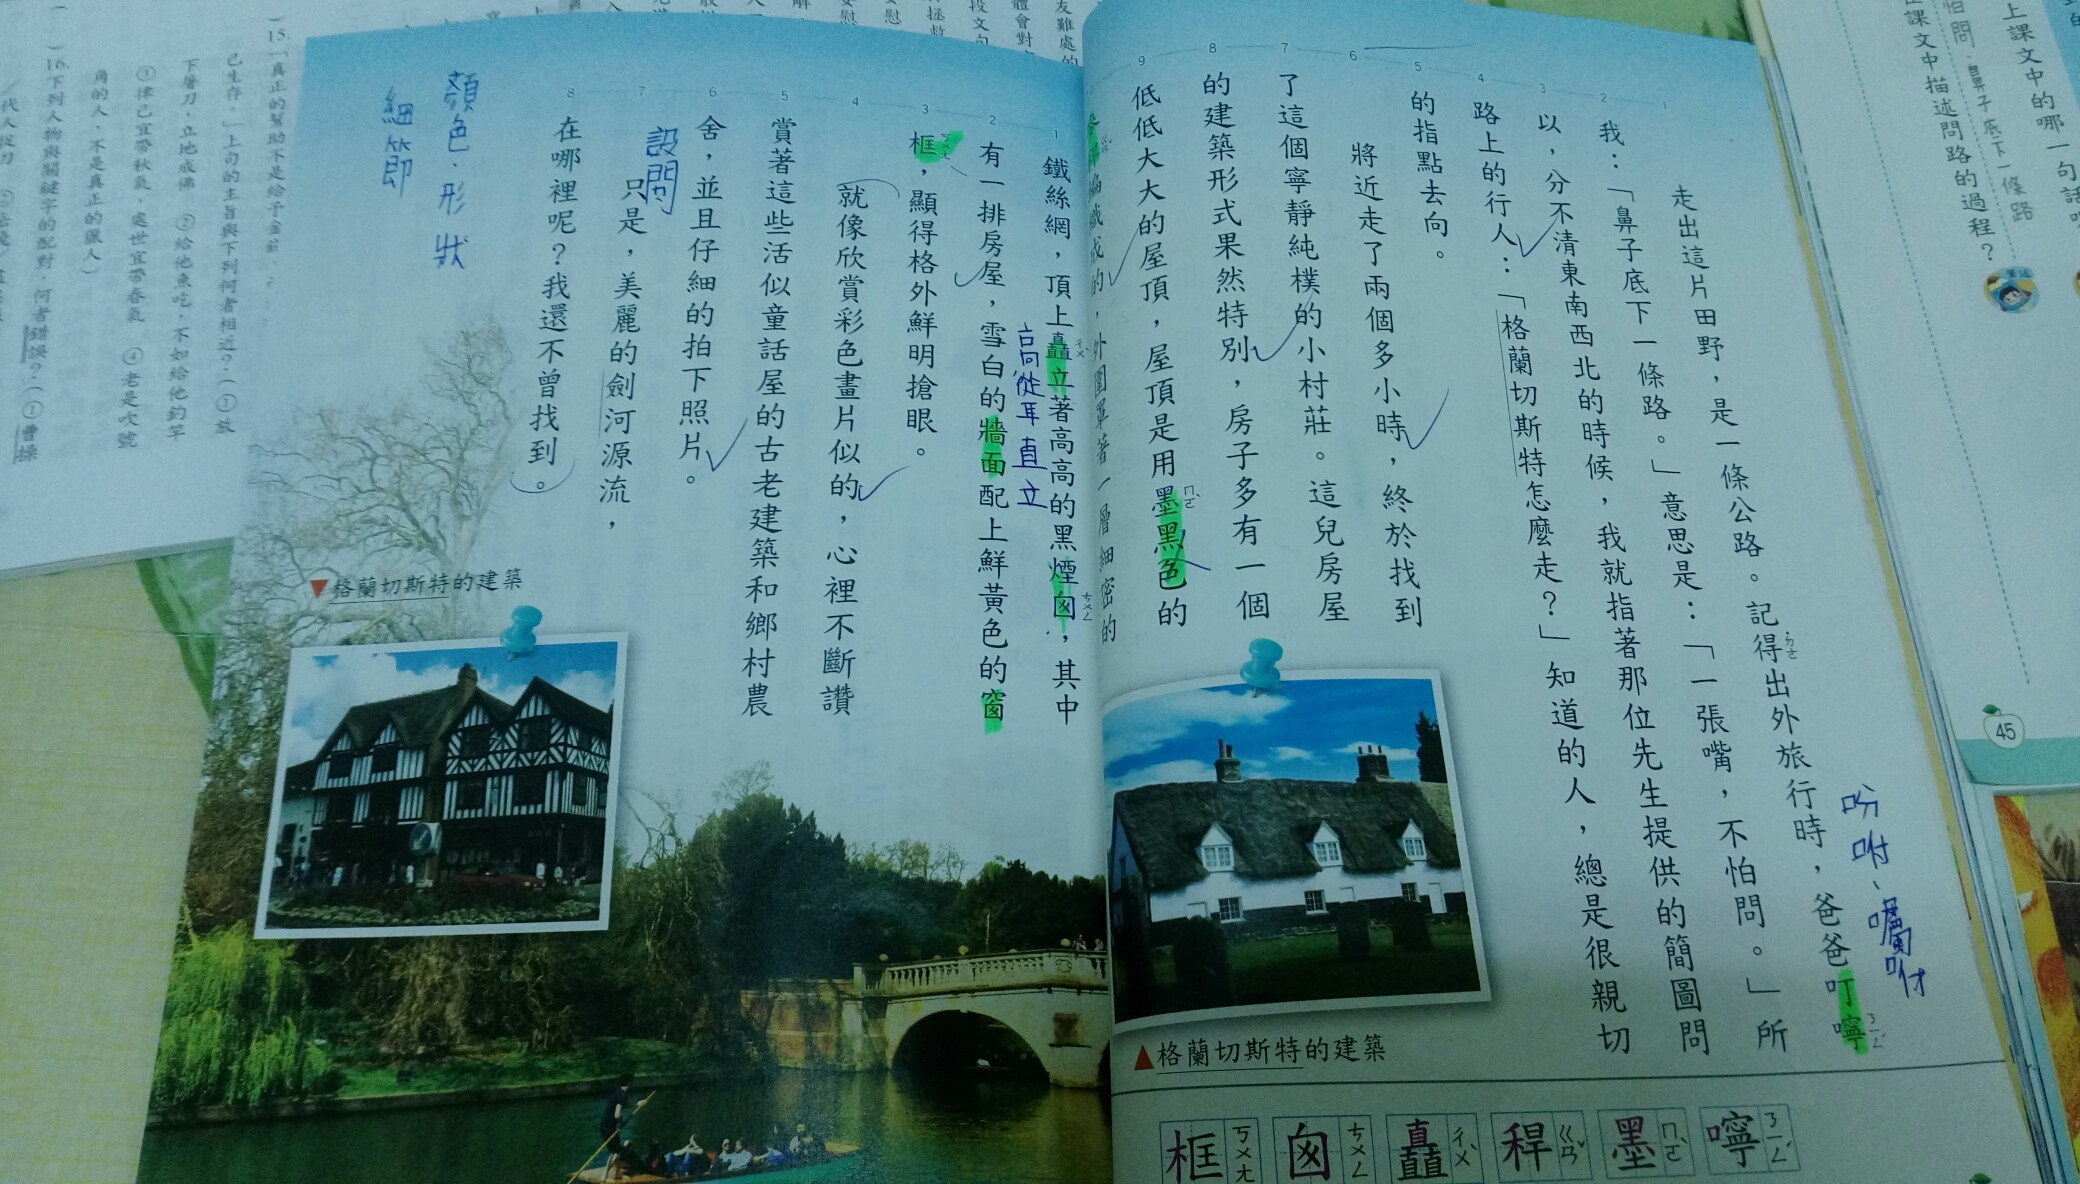 走出這片田野，是一條公路。記得出外旅行時，爸爸叮嚀
我：「鼻子底下一條路。」意思是：「一張嘴，不怕問。」所
以，分不清東南西北的時候，我就指著那位先生提供的簡圖問
路上的行人：「格蘭切斯特怎麼走？」知道的人，總是很親切
的指點去向。
將近走了兩個多小時，終於找到
了這個寧靜純樸的小村莊。這兒房屋
的建築形式果然特別，房子多有一個
低低大大的屋頂，屋頂是用墨黑色的
編織成的，外圍罩著一層細密的
吩咐、囑咐
ㄉㄜ
ㄋㄧㄥ
ㄇㄛ
1
2
3
4
5
6
7
8
9
▲格蘭切斯特的建築
嚀 ㄋㄧㄥ
墨 ㄇㄛˋ
稈 ㄍㄢˇ
矗 ㄔㄨˋ
囪 ㄘㄨㄥ
框 ㄎㄨㄤ
鐵絲網，頂上矗立著高高的黑煙囪，其中
高縱耳直立
有一排房屋，雪白的牆面配上鮮黃色的窗
框，顯得格外鮮明搶眼。
就像欣賞彩色畫片似的，心裡不斷讚
賞著這些活似童話屋的古老建築和鄉村農
舍，並且仔細的拍下照片。
設問
只是，美麗的劍河源流，
在哪裡呢？我還不曾找到。
顏色、形狀
細節
1
2
3
4
5
6
7
8
▼格蘭切斯特的建築
上課文中的哪一句話
在課文中描述問路的過程？
怕問．鼻子底下一條路
45
15.「真正的幫助不是給予金
己生存。」上句的主旨與下列何者相近？（①放
下屠刀，立地成佛 ②給他魚吃，不如給他釣竿
①律己宜帶秋氣，處世宜帶春氣 ④老是吹號
角的人，不是真正的獵人）
16.下列人物與關鍵字的配對，何者錯誤？（①曹操